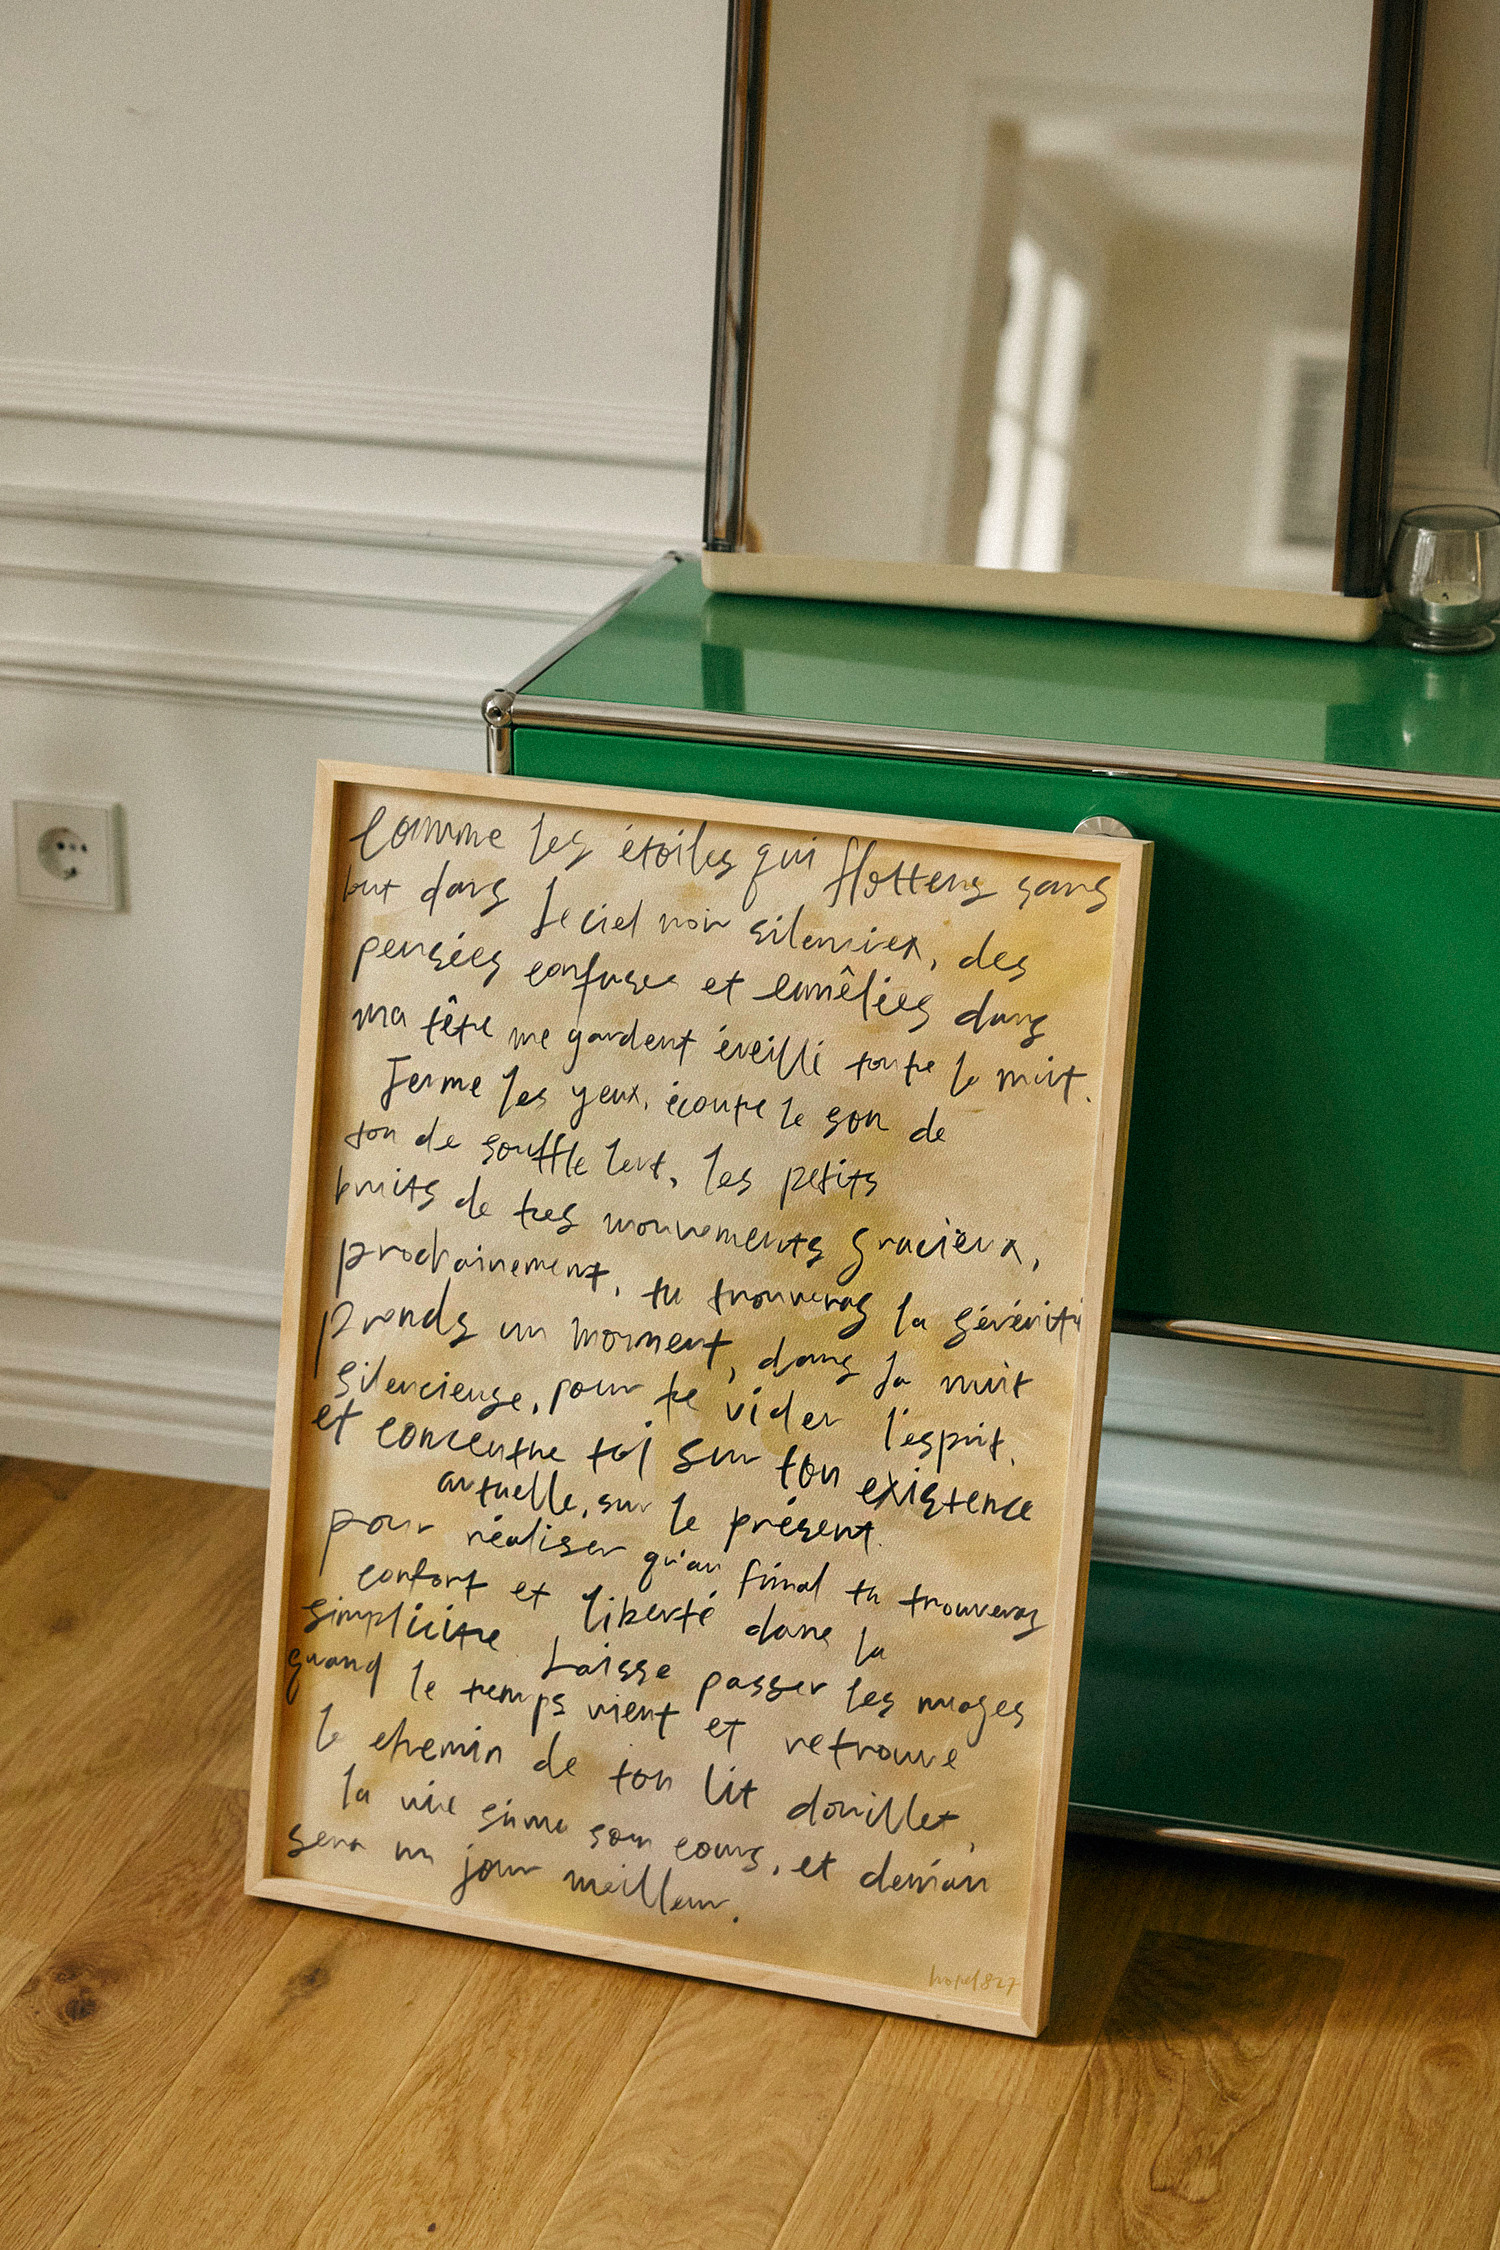 Comme les étoiles qui flottens sans
but dans le ciel noir silenciex, des
pensées confuses et emmêlées dans
ma tête me gardent éveilli toute la nuit.
Ferme les yeux, écoute le son de
ton de souffle lent, les petits
bruits de tes mouvements gracieux,
prochainement, tu trouveras la sérénité
prends un moment, dans la nuit
silencieuse, pour te vider l'esprit.
et concentre toi sur ton existence
actuelle, sur le présent.
pour réaliser qu'au final tu trouveras
confort et liberté dans la
simplicitre. Laisse passer les nuages
quand le temps vient et retrouve
le chemin de ton lit douillet,
la vie suivra son cours, et demain
sera un jour meilleur.